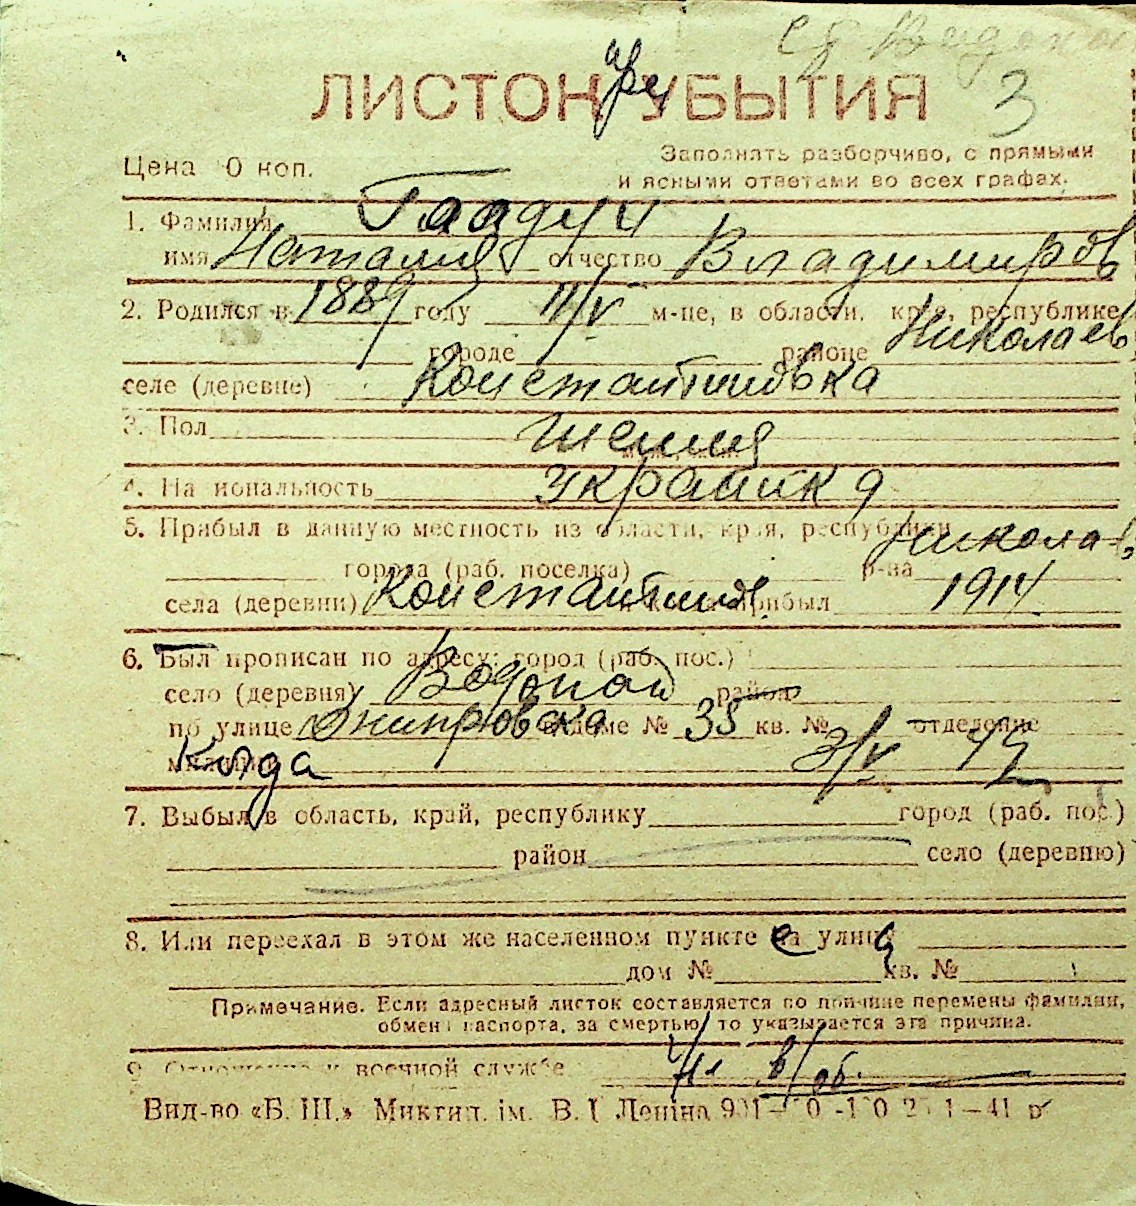 3
ЛИСТОК УБЫТИЯ
Цена 0 коп.
Заполнять разборчиво, с прямыми
и ясными ответами во всех графах.
1. Фамилия Гайдук
имя Наталия отчество Владимиров
2. Родился в 1889 году 11/V м-це, в области, крае, республике
городе районе Николаев
селе (деревне) Константиновка
3. Пол
4. Национальность украинка
5. Прибыл в данную местность из области, края, республики Никола
города (раб. поселка) р-на
села (деревни) Константинов прибыл 1914
6. Был прописан по адресу: город (раб. пос.)
село (деревня) Водопой район
по улице Днипровска в доме № 35 кв. № отделение
Куда
7. Выбыл в область, край, республику город (раб. пос.)
район село (деревню)
8. Или переехал в этом же населенном пункте на улицу
дом № кв. №
Примечание. Если адресный листок составляется по причине перемены фамилии,
обмена паспорта, за смертью, то указывается эта причина.
9. Отношение к военной службе н/ в/об.
Вид-во «Б. Ш.» Миктип. ім. В. І Леніна